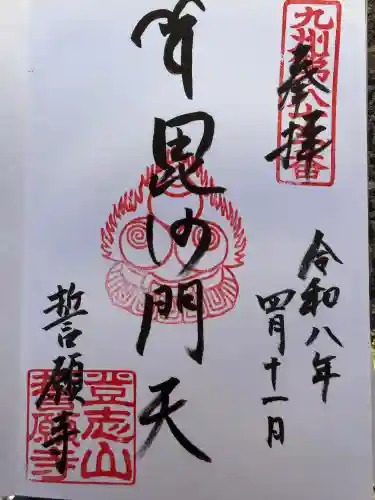 九州第八十番
奉拝
令和八年
四月十一日
毘沙門天
誓願寺
登志山
誓願寺